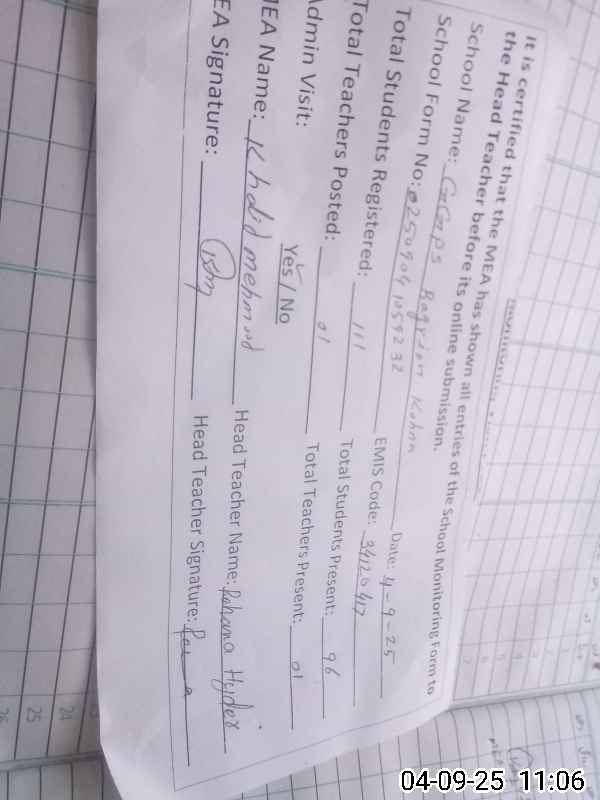 It is certified that the MEA has shown all entries of the School Monitoring Form to
the Head Teacher before its online submission.
School Name: GGPS Bagrian Kohna
School Form No: 0250904 1059232 Date: 4-9-25
Total Students Registered: 111 EMIS Code: 34120417
Total Teachers Posted: 01 Total Students Present: 96
Admin Visit: Yes / No Total Teachers Present: 01
MEA Name: Khalid mehmood Head Teacher Name: Rehana Hyder
EA Signature: Head Teacher Signature:
24
25
26
04-09-25 11:06